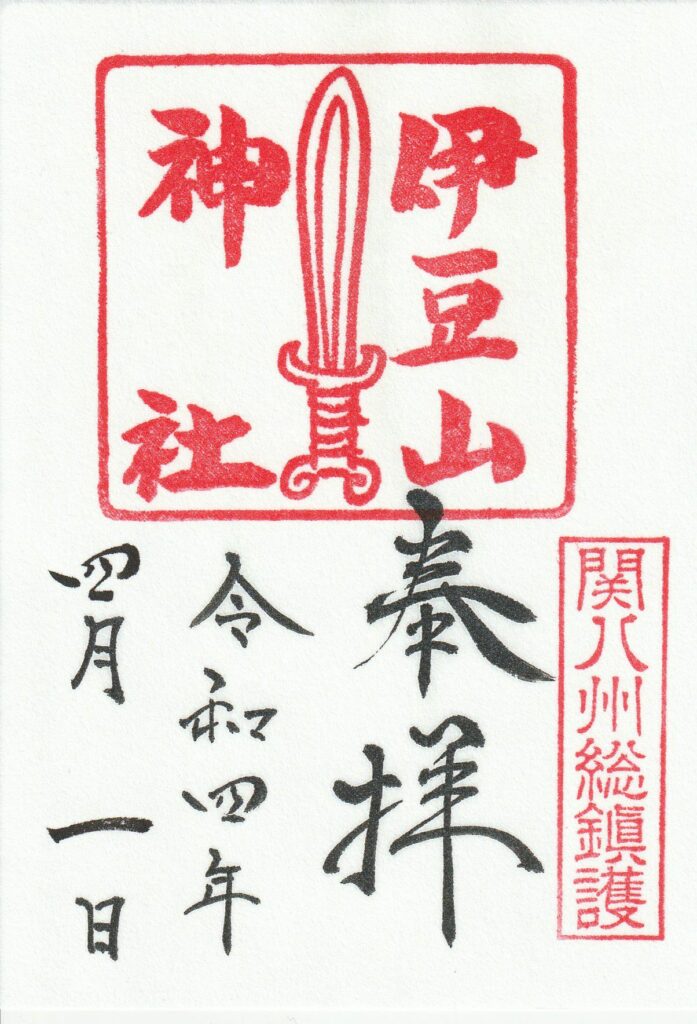 伊豆山
神社
関八州総鎮護
奉拝
令和四年
四月一日